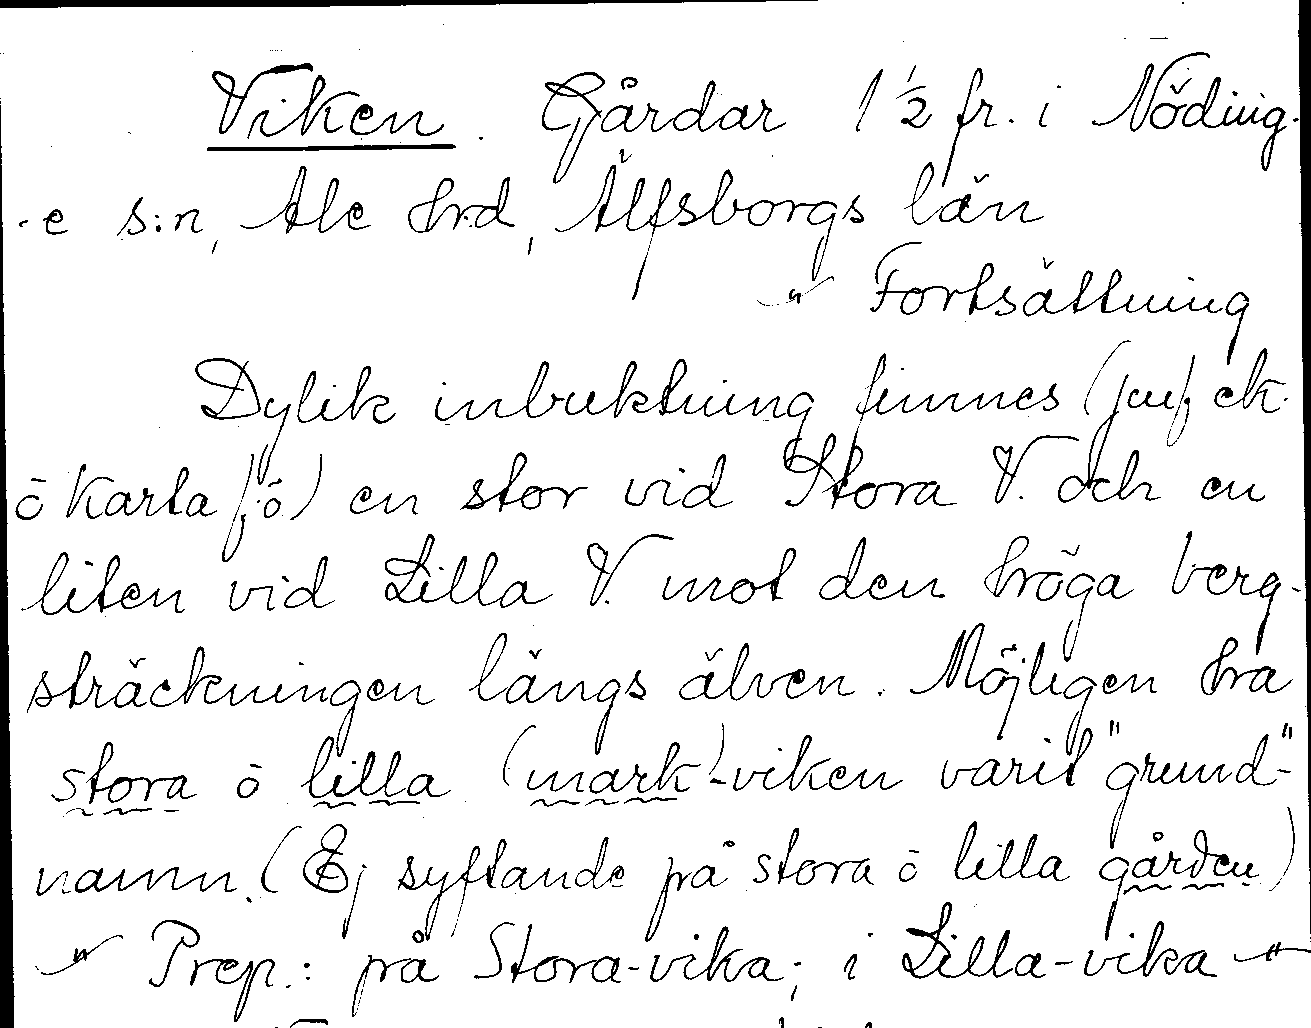 Viken. Gårdar 1 1/2 fr. i Nöding-
-e s:n, Ale hrd, Älfsborgs län
-"- Fortsättning
Dylik inbuktning finnes (jmf ek.
ō karta f.ö) en stor vid Stora V. och en
liten vid Lilla V. mot den höga berg-
sträckningen längs älven. Möjligen ha
stora ō lilla (mark)-viken varit "grund-"
namn. (Ej syftande på stora ō lilla gården)
-"- Prep.: på Stora-vika; i Lilla-vika -"-